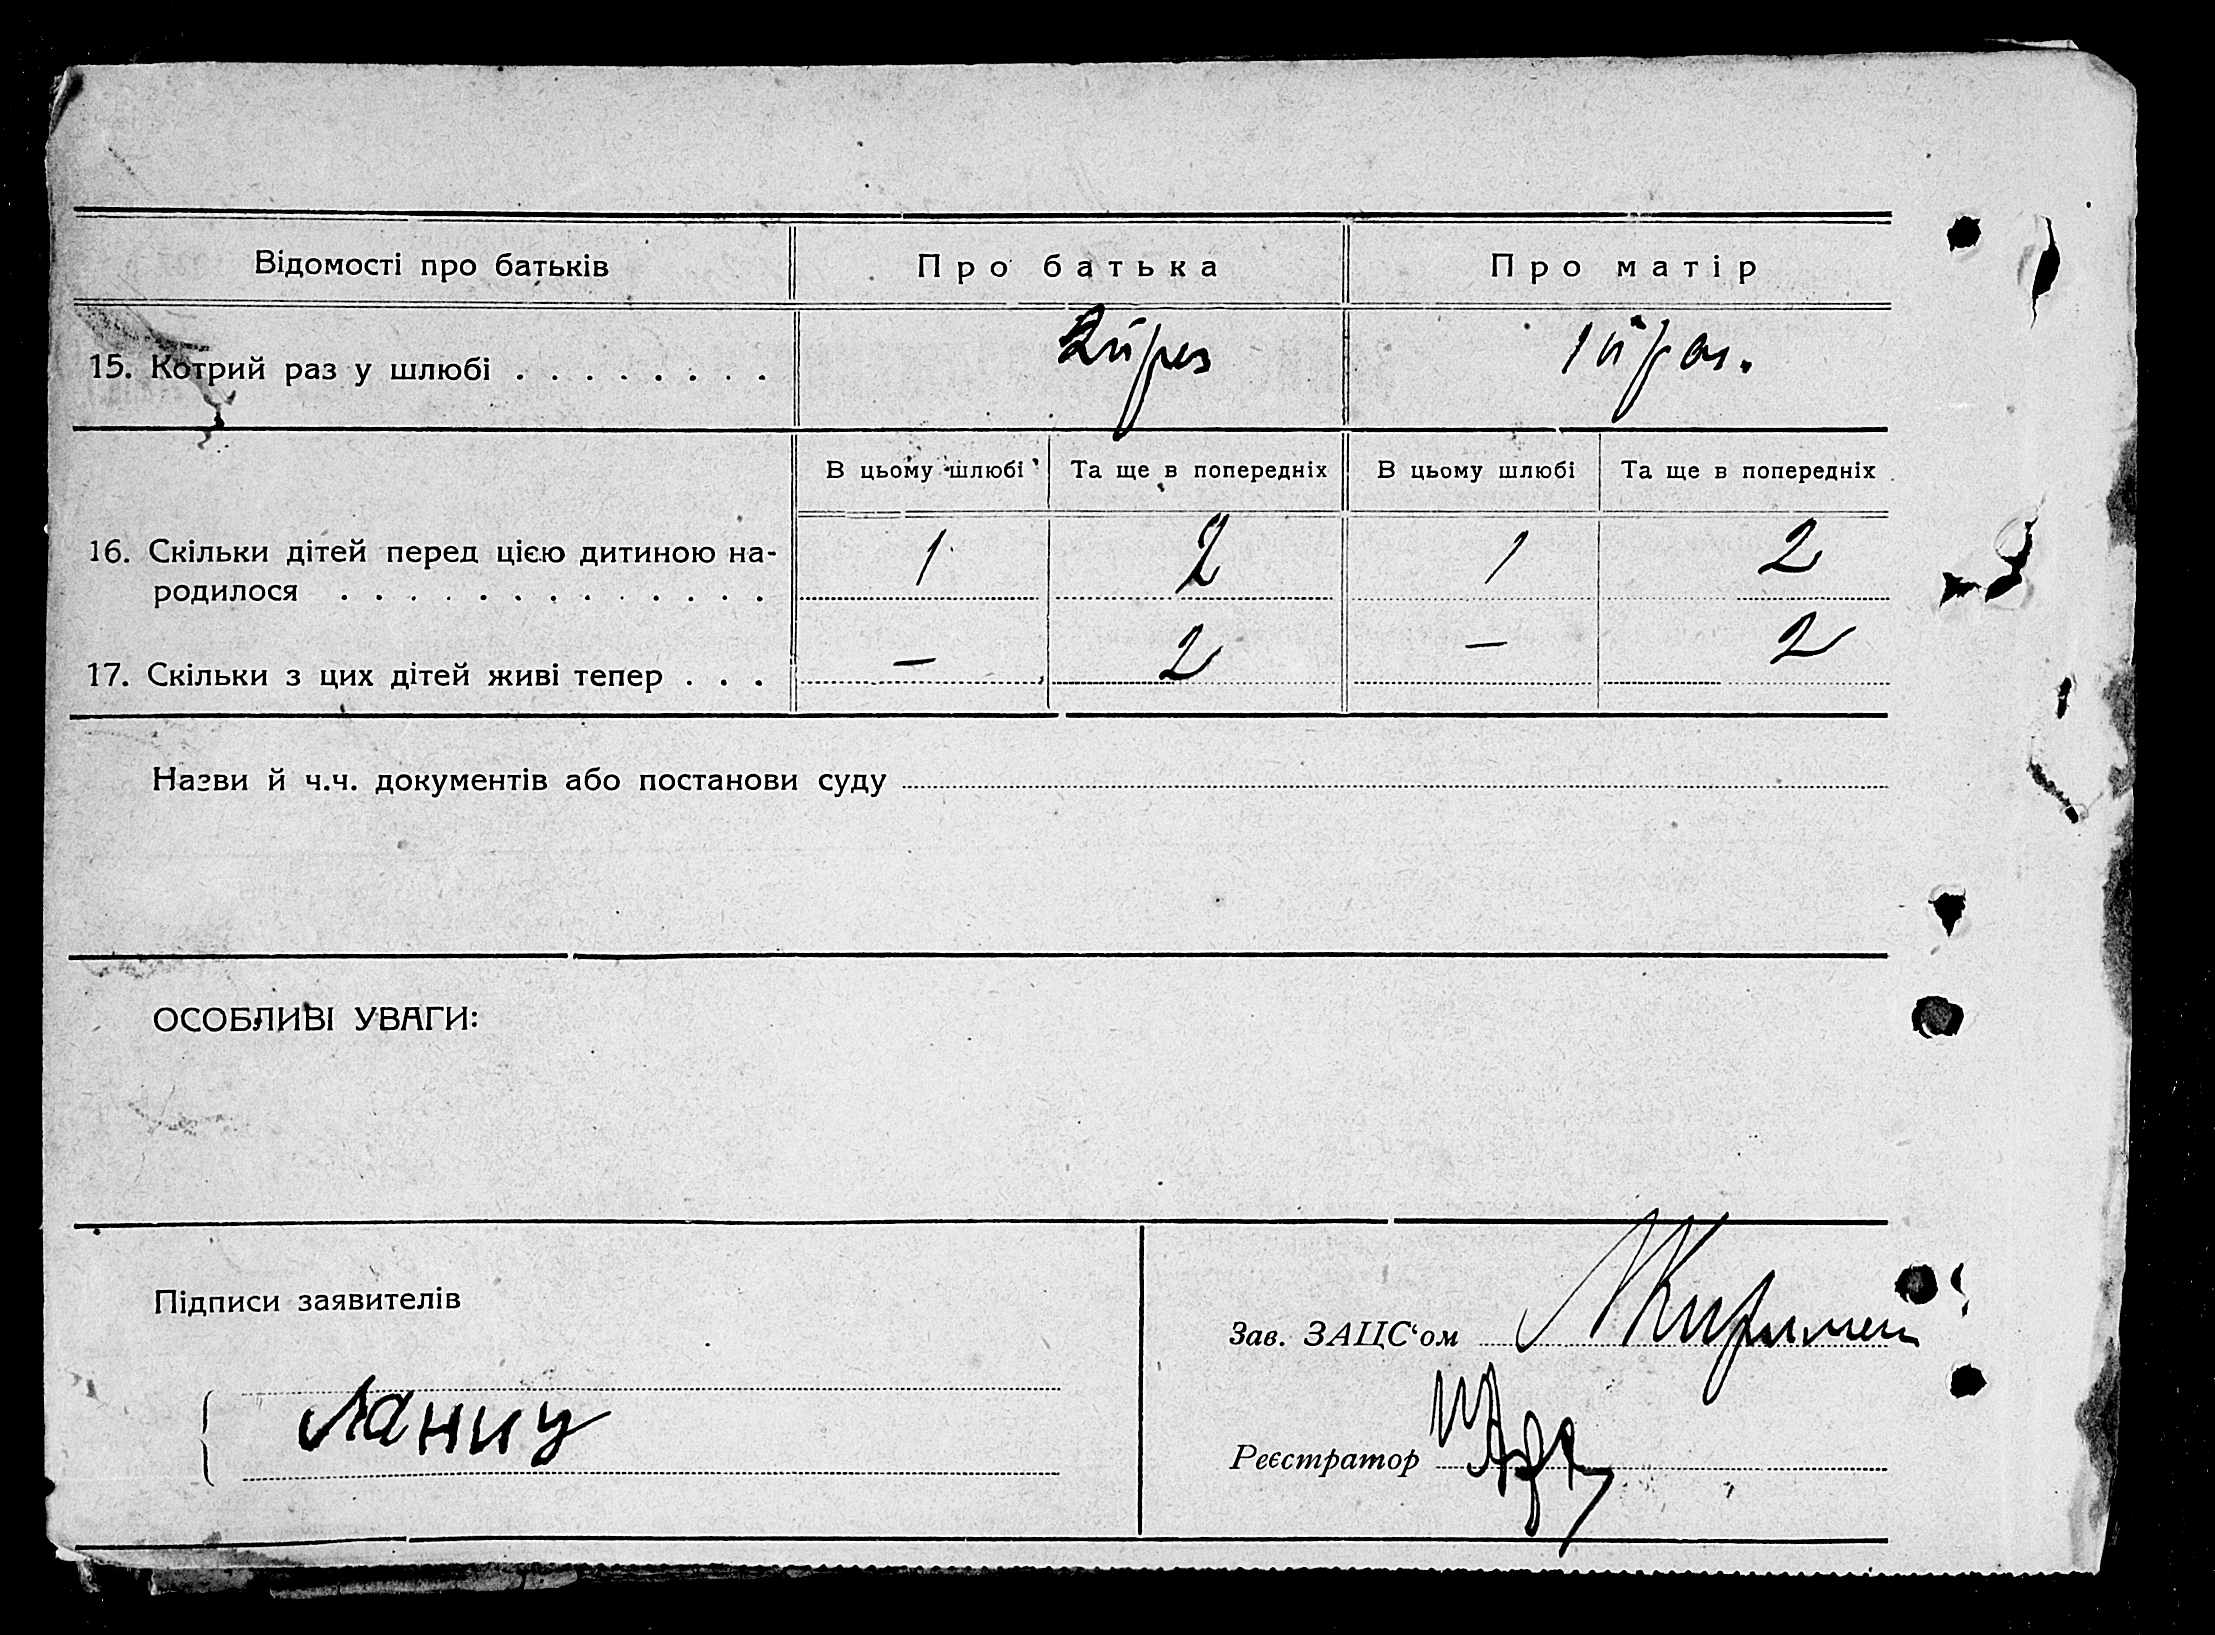 Відомості про батьків Про батька Про матір
15. Котрий раз у шлюбі . . . . . . . . 2й раз 1й раз.
В цьому шлюбі Та ще в попередніх В цьому шлюбі Та ще в попередніх
16. Скільки дітей перед цією дитиною на-
родилося . . . . . . . . . . . . . 1 2 1 2
17. Скільки з цих дітей живі тепер . . . – 2 – 2
Назви й ч.ч. документів або постанови суду
ОСОБЛИВІ УВАГИ:
Підписи заявителів
Зав. ЗАЦС‘ом
Реєстратор